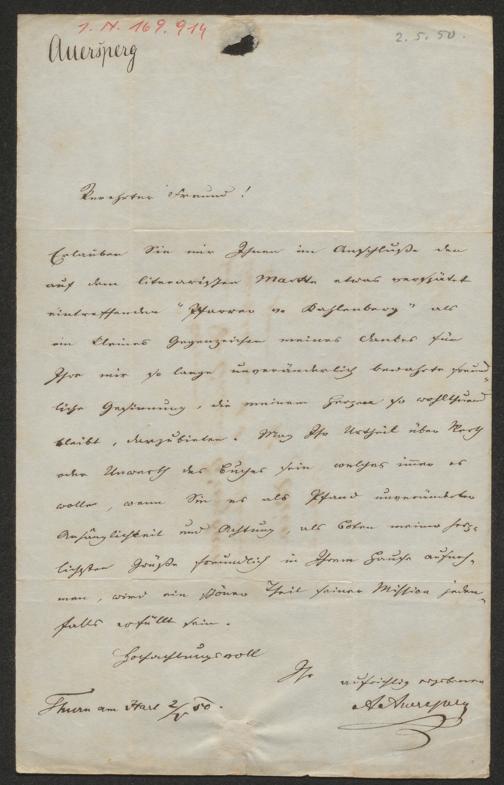 I. N. 169.914
2. 5. 50.
Auersperg
Verehrter Freund!
Erlauben Sie mir Ihnen im Anschluße den
auf dem literarischen Markte etwas verspätet
eintreffenden "Pfarrer v. Kahlenberg" als
ein kleines Gegenzeichen meines Dankes für
Ihre mir so lange unveränderlich bewahrte freund-
liche Gesinnung, die meinem Herzen so wohlthuend
bleibt, darzubieten. Mag Ihr Urtheil über Werth
oder Unwerth des Buches sein welches immer es
wolle, wenn Sie es als Pfand unveränderter
Anhänglichkeit und Achtung, als Boten meiner herz-
lichsten Grüße freundlich in Ihrem Hause aufneh-
men, wird ein schöner Theil seiner Mission jeden-
falls erfüllt sein.
Hochachtungsvoll
Ihr
aufrichtig ergebener
AAuersperg
Thurn am Hart 2/V 50.